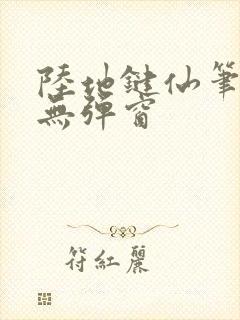 陸地鍵仙筆
無彈窗
符紅麗